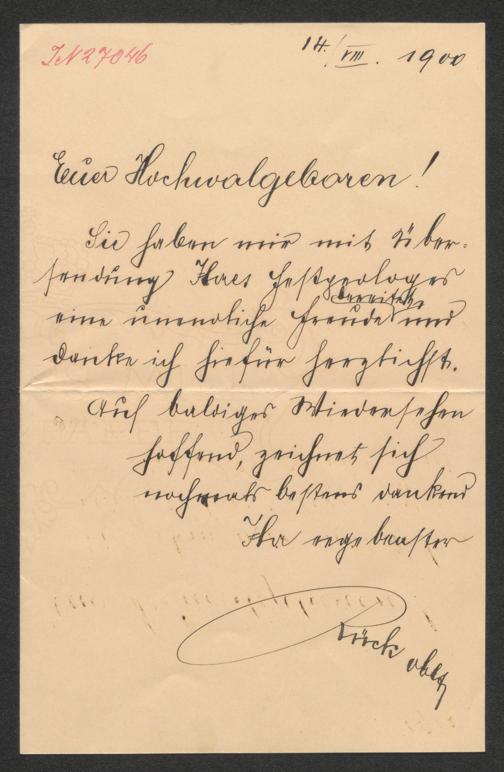 IN 27046
14./VIII. 1900
Euer Hochwolgeboren!
Sie haben mir mit Über-
sendung Ihres Festprologes
bereitet,
eine unendliche Freude und
danke ich hiefür herzlichst.
Auf baldiges Wiedersehen
hoffend, zeichnet sich
nochmals bestens dankend
Ihr ergebenster
Rück